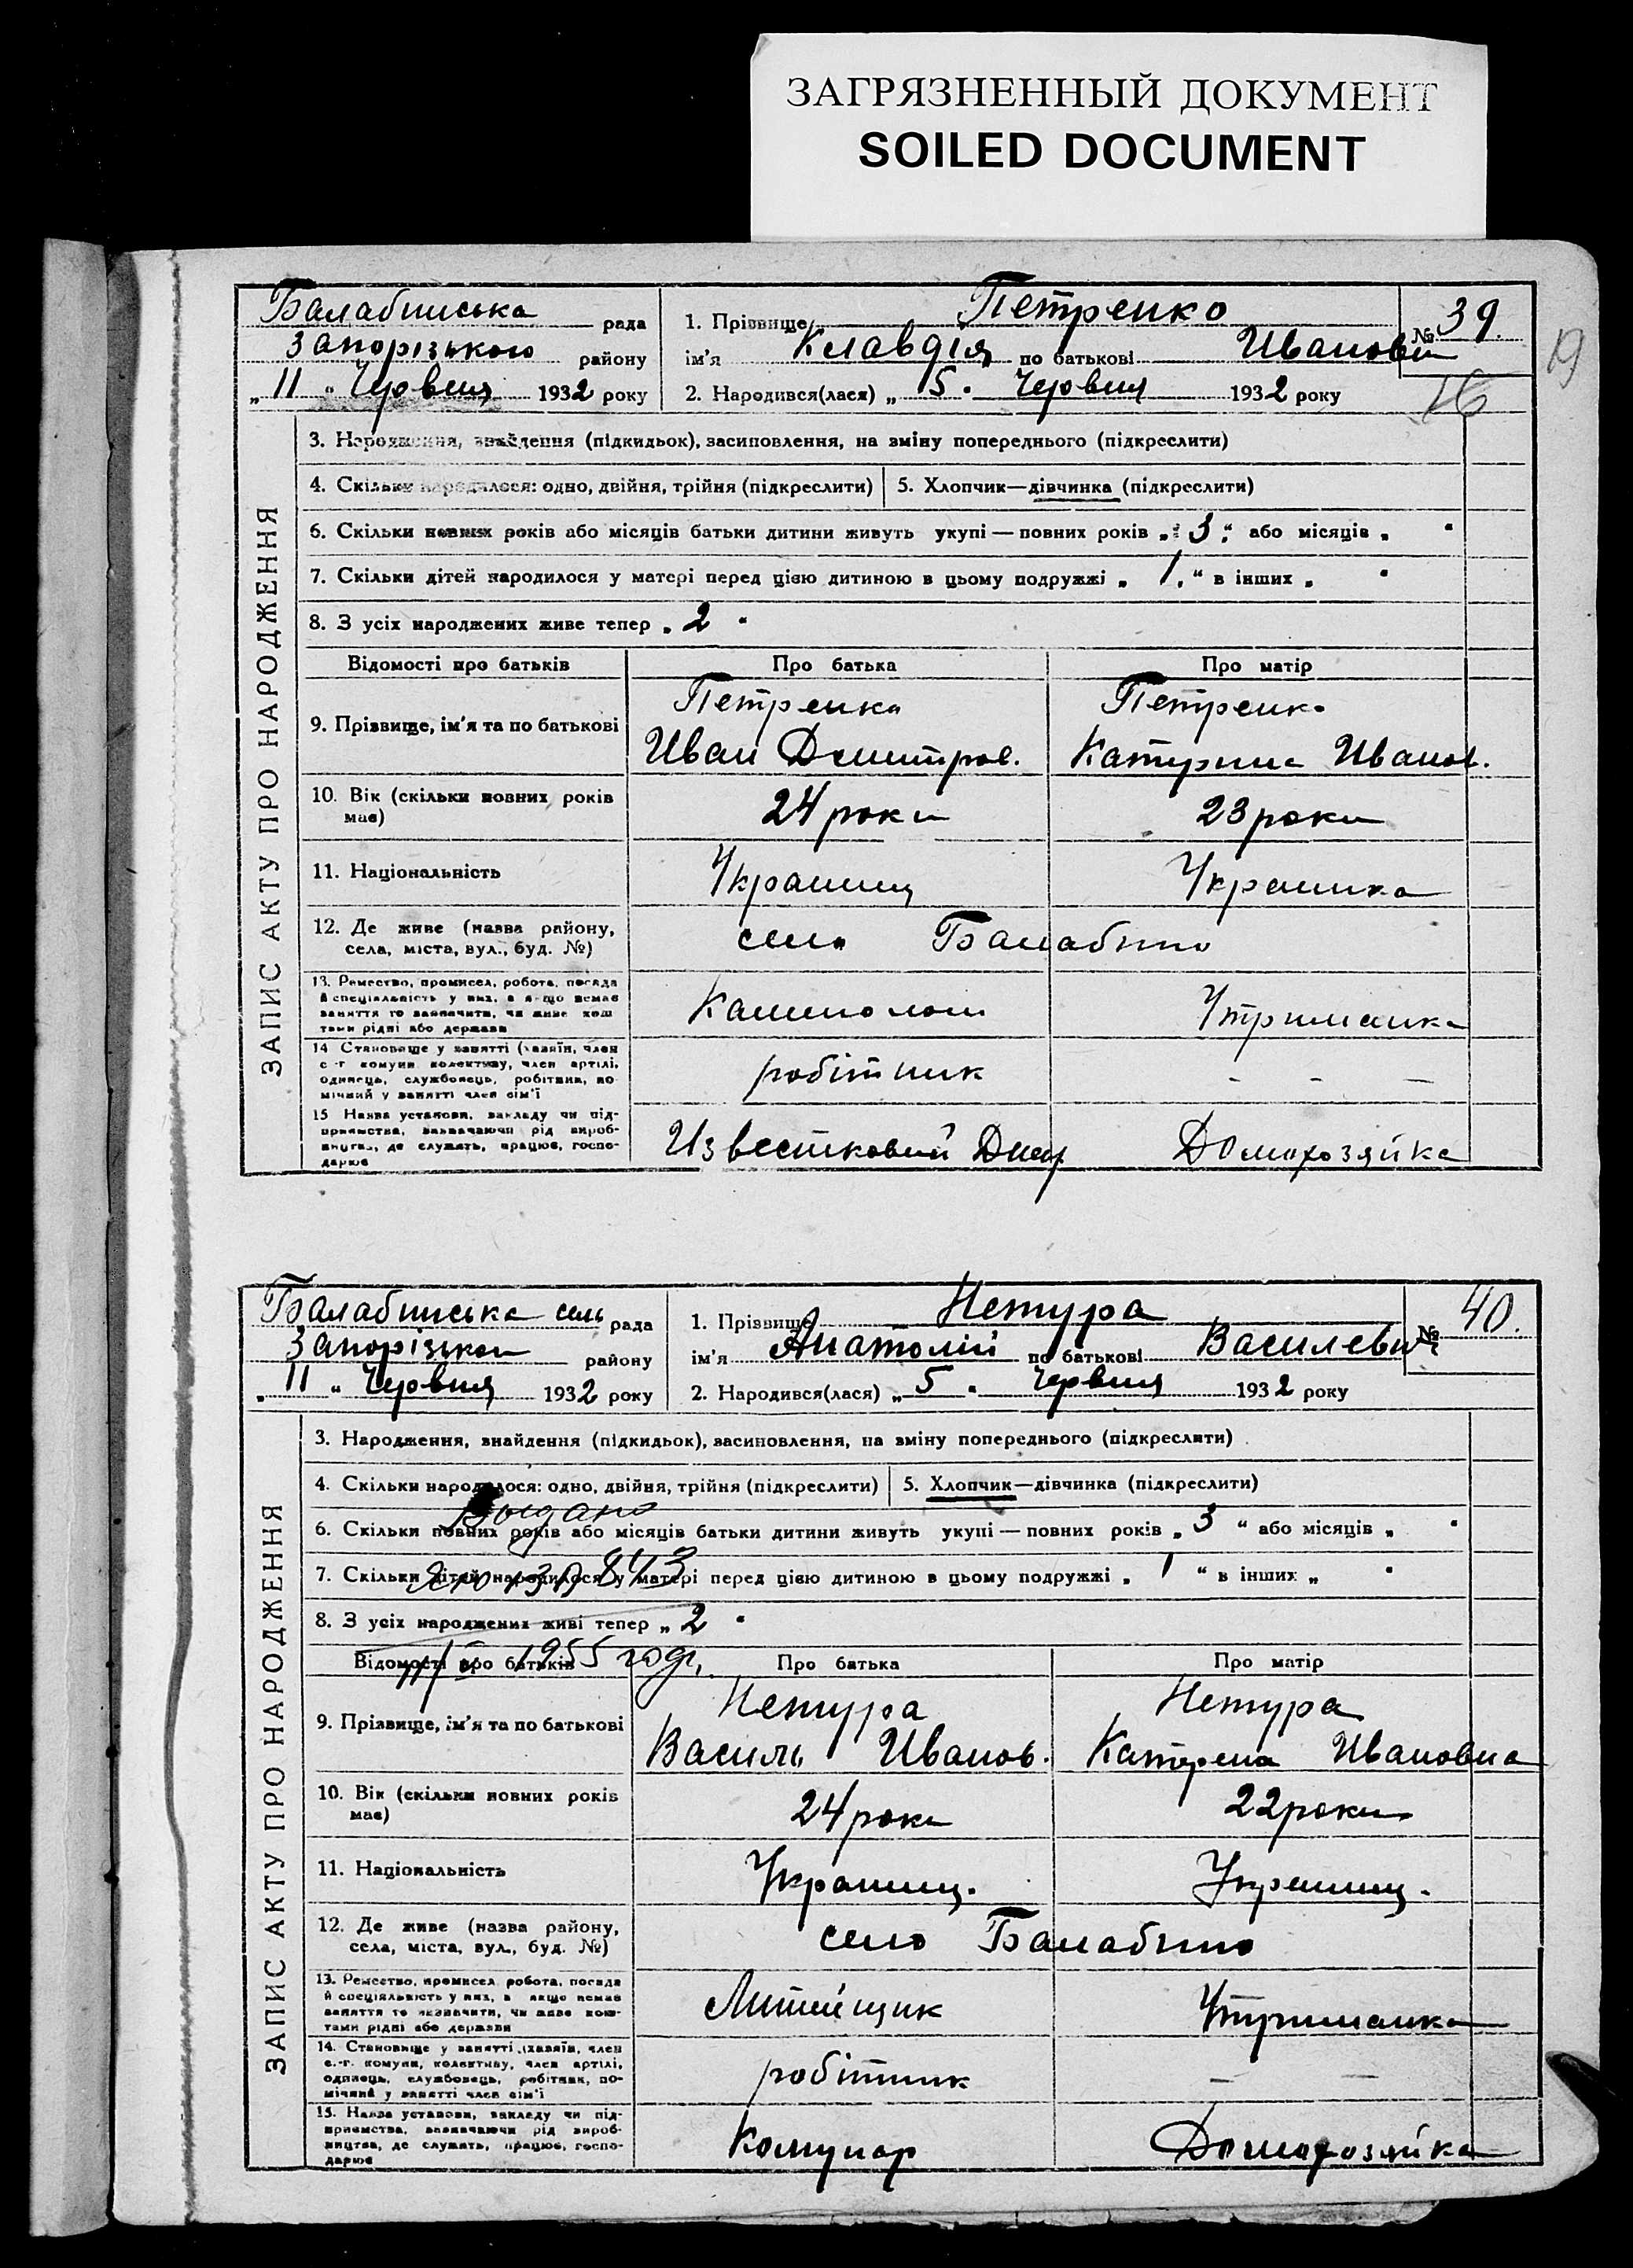 ЗАГРЯЗНЕННЫЙ ДОКУМЕНТ
SOILED DOCUMENT
19
Балабинська рада
Запорізького району
„ 11 “ Червня 1932 року
1. Прізвище Петренко
ім'я Клавдія по батькові Ивановн
2. Народився(лася) „ 5 “ Червня 1932 року
№ 39.
16
ЗАПИС АКТУ ПРО НАРОДЖЕННЯ
3. Народження, знайдення (підкидьок), засиновлення, на зміну попереднього (підкреслити)
4. Скільки народилося: одно, двійня, трійня (підкреслити) 5. Хлопчик—дівчинка (підкреслити)
6. Скільки повних років або місяців батьки дитини живуть укупі — повних років „ 3 “ або місяців „ “
7. Скільки дітей народилося у матері перед цією дитиною в цьому подружжі „ 1. “ в інших „ “
8. З усіх народжених живе тепер „ 2 “
Відомості про батьків Про батька Про матір
9. Прізвище, ім'я та по батькові
Петренко Петренко
Иван Дмитров. Катерина Иванов.
10. Вік (скільки повних років має) 24 роки 23 роки
11. Національність Українец Українка
12. Де живе (назва району,
села, міста, вул., буд. №)
село Балабино
13. Ремество, промисел, робота, посада
й спеціяльність у них, а якщо немає
заняття то зазначити, чи живе кош
тами рідні або держави
Каменолом Утриманка
14 Становище у занятті (хазяїн, член
с.-г комуни колективу, член артілі,
одинець, службовець, робітник, по
мічний у занятті член сім'ї
робітник - - -
15 Назва установи, закладу чи під-
приємства, зазначаючи рід вироб-
ництва, де служить, працює, госпо-
дарює
Известковий Домохозяйка
Балабинська сель рада
Запорізьког району
„ 11 “ Червня 1932 року
1. Прізвище Нетура
ім'я Анатолій по батькові Василевич
2. Народився(лася) „ 5 “ Червня 1932 року
№ 40.
ЗАПИС АКТУ ПРО НАРОДЖЕННЯ
3. Народження, знайдення (підкидьок), засиновлення, на зміну попереднього (підкреслити)
4. Скільки народилося: одно, двійня, трійня (підкреслити) 5. Хлопчик—дівчинка (підкреслити)
Выдано
6. Скільки повних років або місяців батьки дитини живуть укупі — повних років „ 3 “ або місяців „ “
7. Скільки дітей народилося у матері перед цією дитиною в цьому подружжі „ 1 “ в інших „ “
8. З усіх народжених живі тепер „ 2 “
1955 год
Відомості про батьків Про батька Про матір
9. Прізвище, ім'я та по батькові
Нетура Нетура
Василь Иванов. Катерена Ивановна
10. Вік (скільки повних років має) 24 роки 22 роки
11. Національність Українец. Українец.
12. Де живе (назва району,
села, міста, вул., буд. №)
село Балабино
13. Ремество, промисел робота, посада
й спеціяльність у них, а якщо немає
заняття то зазначити, чи живе кош-
тами рідні або держави
Литейщик Утриманка
14. Становище у занятті (хазяїн, член
с.-г. комуни, колективу, член артілі,
одинець, службовець, робітник, по-
мічний у занятті член сім'ї
робітник - -
15. Назва установи, закладу чи під-
приємства, зазначаючи рід вироб-
ництва, де служить, працює, госпо-
дарює
Комунар Домохозяйка